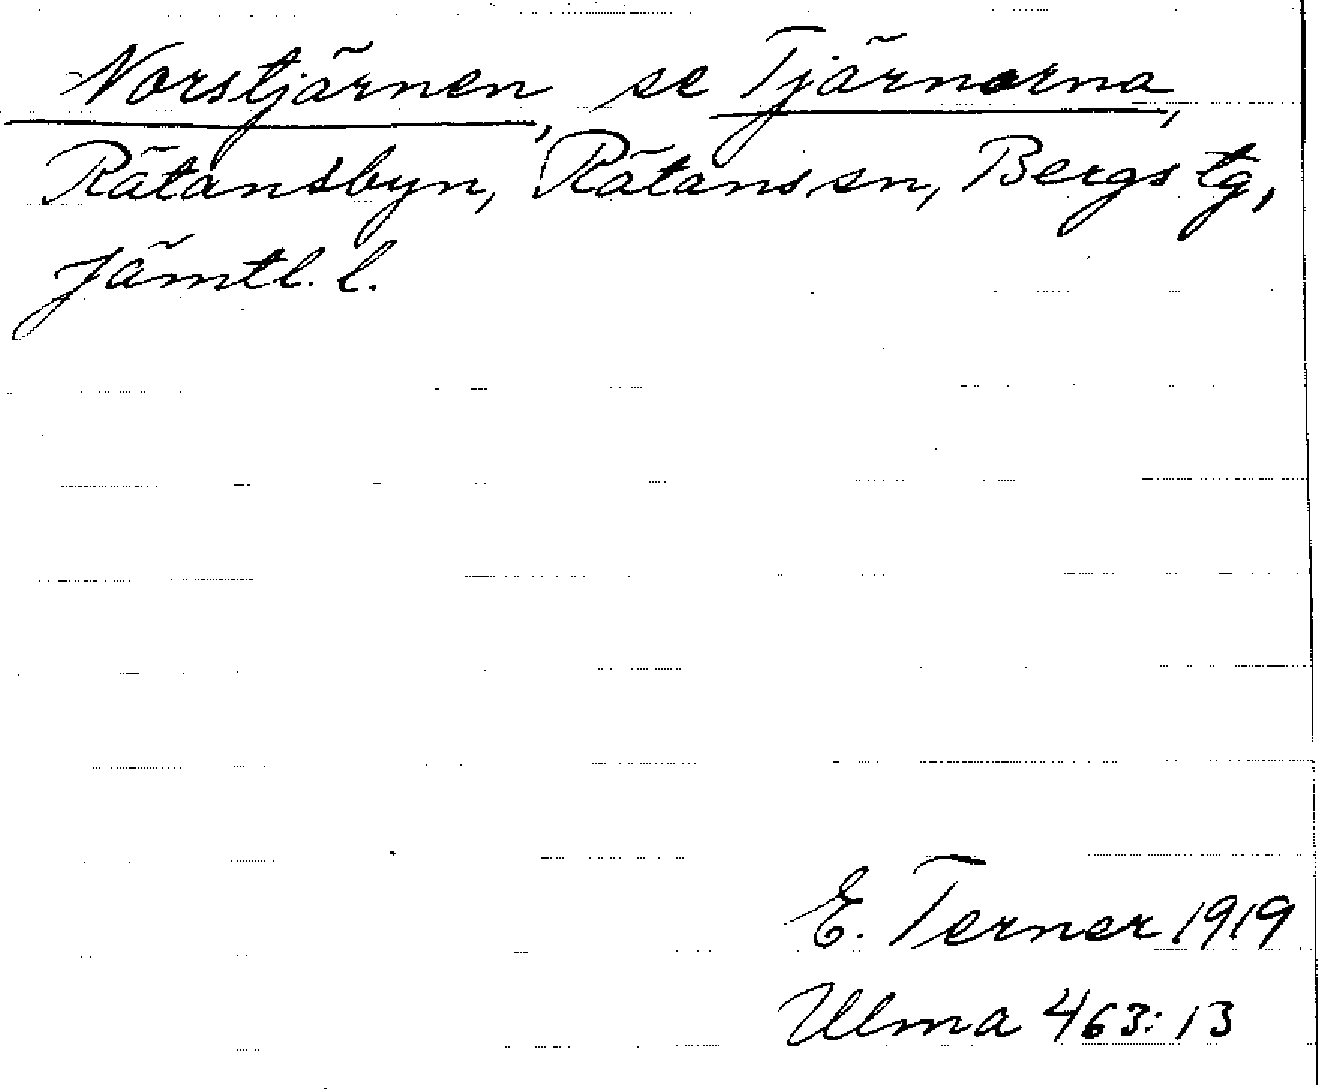 Norstjärnen, se Tjärnorna,
Rätansbyn, Rätans sn, Bergs tg,
Jämtl. l.
E. Terner 1919
Ulma 463:13